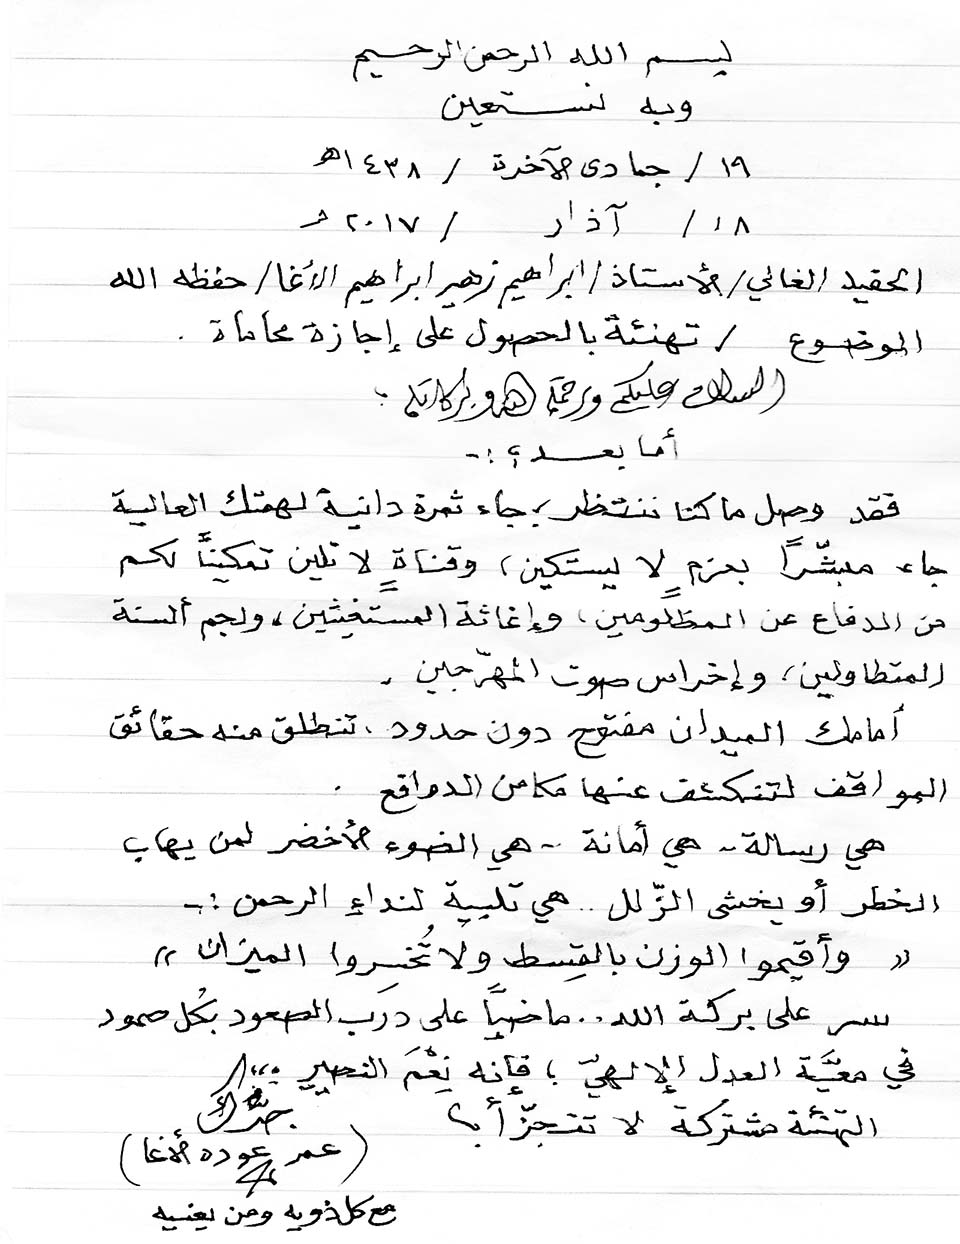 بسم الله الرحمن الرحيم
وبه نستعين
١٩ / جمادى الآخرة / ١٤٣٨هـ
١٨ / آذار / ٢٠١٧م
الحفيد الغالي / الأستاذ / ابراهيم زهير ابراهيم الأغا / حفظه الله
الموضوع / تهنئة بالحصول على إجازة محاماة .
السلام عليكم ورحمة الله وبركاته :
أما بعد ؛ :-
فقد وصل ما كنا ننتظر ، جاء ثمرة دانية لهمتك العالية
جاء مبشّراً بعزمٍ لا يستكين ، وقناةٍ لا تلين تمكيناً لكم
من الدفاع عن المظلومين ، وإغاثة المستغيثين ، ولجم ألسنة
المتطاولين ، وإخراس صوت المهرّجين .
أمامك الميدان مفتوح دون حدود ، تنطلق منه حقائق
المواقف لتنكشف عنها مكامن الدوافع .
هي رسالة - هي أمانة - هي الضوء الأخضر لمن يهاب
الخطر أو يخشى الزّلل .. هي تلبية لنداء الرحمن :-
" وأقيموا الوزن بالقِسط ولا تُخسِروا الميزان "
سر على بركة الله .. ماضياً على درب الصعود بكُل صمود
في معيَّة العدل الإلهيّ ؛ فإنه نِعْمَ النصير ،،،،
التهنئة مشتركة لا تتجزّأ ؛ جدّك
( عمر عوده الأغا )
مع كل ذويه ومن يعنيه